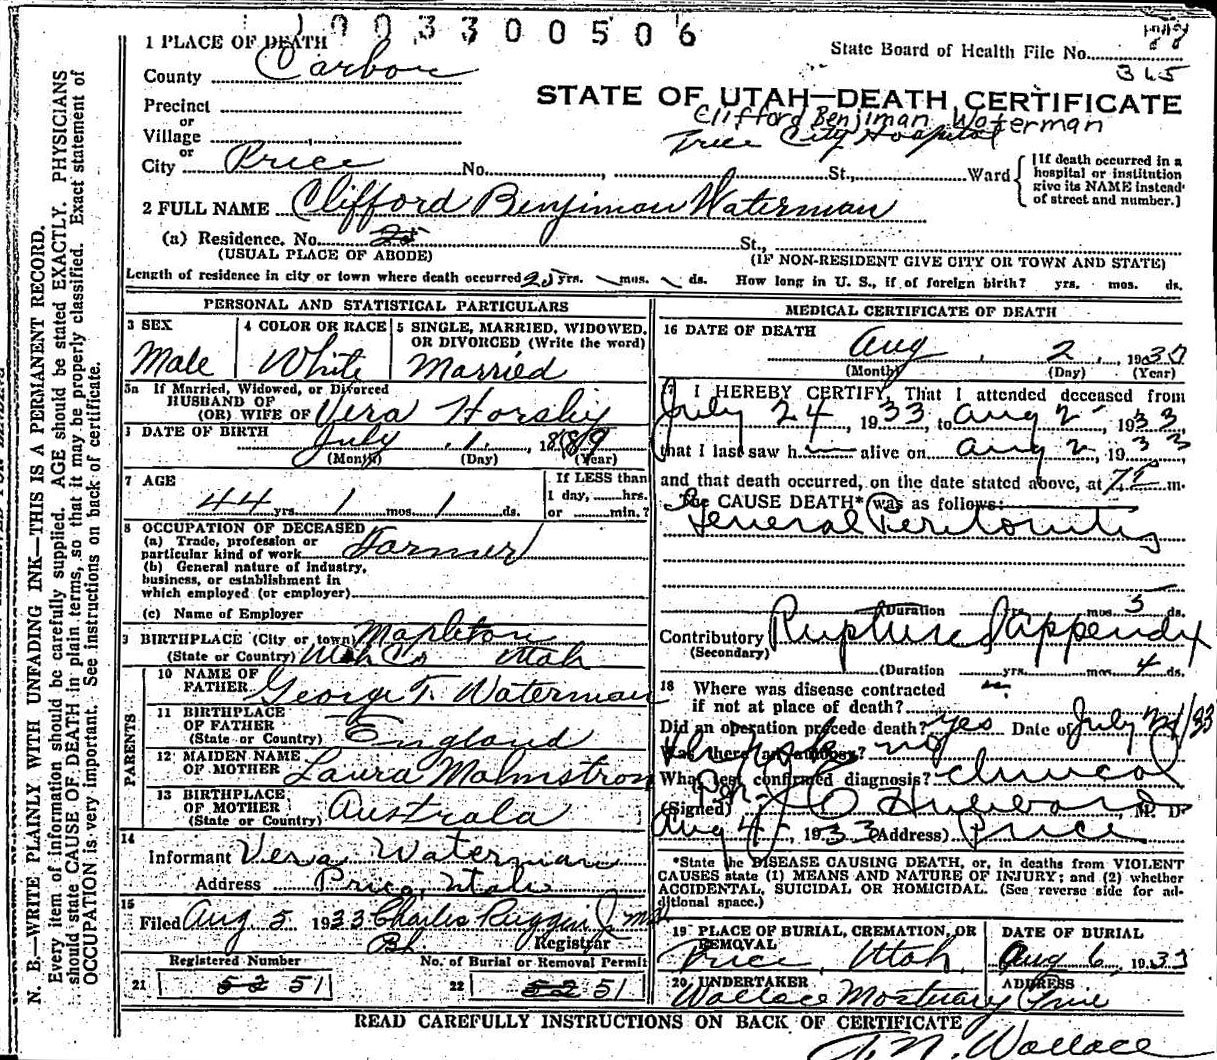 1003300506
State Board of Health File No.
365
1 PLACE OF DEATH
County Carbon
STATE OF UTAH—DEATH CERTIFICATE
Clifford Benjiman Waterman
Precinct
or
Village
Price City Hospital
or
City Price No. , St., Ward
[If death occurred in a
hospital or institution
give its NAME instead
of street and number.]
2 FULL NAME Clifford Benjiman Waterman
(a) Residence. No. 25 St.,
(USUAL PLACE OF ABODE) (IF NON-RESIDENT GIVE CITY OR TOWN AND STATE)
Length of residence in city or town where death occurred 25 yrs. mos. ds. How long in U. S., if of foreign birth? yrs. mos. ds.
PERSONAL AND STATISTICAL PARTICULARS
3 SEX
Male
4 COLOR OR RACE
White
5 SINGLE, MARRIED, WIDOWED,
OR DIVORCED (Write the word)
Married
5a If Married, Widowed, or Divorced
HUSBAND OF
(OR) WIFE OF Vera Horsley
DATE OF BIRTH July 1, 1889
(Month) (Day) (Year)
7 AGE
44 yrs. 1 mos. 1 ds.
If LESS than
1 day, hrs.
or min.?
8 OCCUPATION OF DECEASED
(a) Trade, profession or
particular kind of work Farmer
(b) General nature of industry,
business, or establishment in
which employed (or employer)
(c) Name of Employer
9 BIRTHPLACE (City or town) Mapleton
(State or Country) Utah Co Utah
PARENTS
10 NAME OF
FATHER George T. Waterman
11 BIRTHPLACE
OF FATHER
(State or Country) England
12 MAIDEN NAME
OF MOTHER Laura Malmstrom
13 BIRTHPLACE
OF MOTHER
(State or Country) Australa
14
Informant Vera Waterman
Address Price, Utah
15
Filed Aug 5 1933 Charles Ruggeri Jr. Md
Registrar
Registered Number
21 52 51
No. of Burial or Removal Permit
22 52 51
MEDICAL CERTIFICATE OF DEATH
16 DATE OF DEATH
Aug 2, 1933
(Month) (Day) (Year)
I HEREBY CERTIFY, That I attended deceased from
July 24, 1933, to Aug 2, 1933,
that I last saw h alive on Aug 2, 1933,
and that death occurred, on the date stated above, at m.
The CAUSE DEATH* was as follows:
General Peritonitis
(Duration yrs. mos. 5 ds.
Contributory Ruptured Appendix
(Secondary)
(Duration yrs. mos. 4 ds.
18 Where was disease contracted
if not at place of death?
Did an operation precede death? yes Date of July 24/33
Was there an autopsy? no
What test confirmed diagnosis? clinical
(Signed) M. D.
Aug 4, 1933 (Address) Price
*State the DISEASE CAUSING DEATH, or, in deaths from VIOLENT
CAUSES state (1) MEANS AND NATURE OF INJURY; and (2) whether
ACCIDENTAL, SUICIDAL OR HOMICIDAL. (See reverse side for ad-
ditional space.)
19 PLACE OF BURIAL, CREMATION, OR
REMOVAL
Price, Utah
DATE OF BURIAL
Aug 6, 1933
20 UNDERTAKER
Wallace Mortuary
ADDRESS
Price
READ CAREFULLY INSTRUCTIONS ON BACK OF CERTIFICATE
Wallace
N. B.—WRITE PLAINLY WITH UNFADING INK—THIS IS A PERMANENT RECORD.
Every item of information should be carefully supplied. AGE should be stated EXACTLY. PHYSICIANS
should state CAUSE OF DEATH in plain terms, so that it may be properly classified. Exact statement of
OCCUPATION is very important. See instructions on back of certificate.